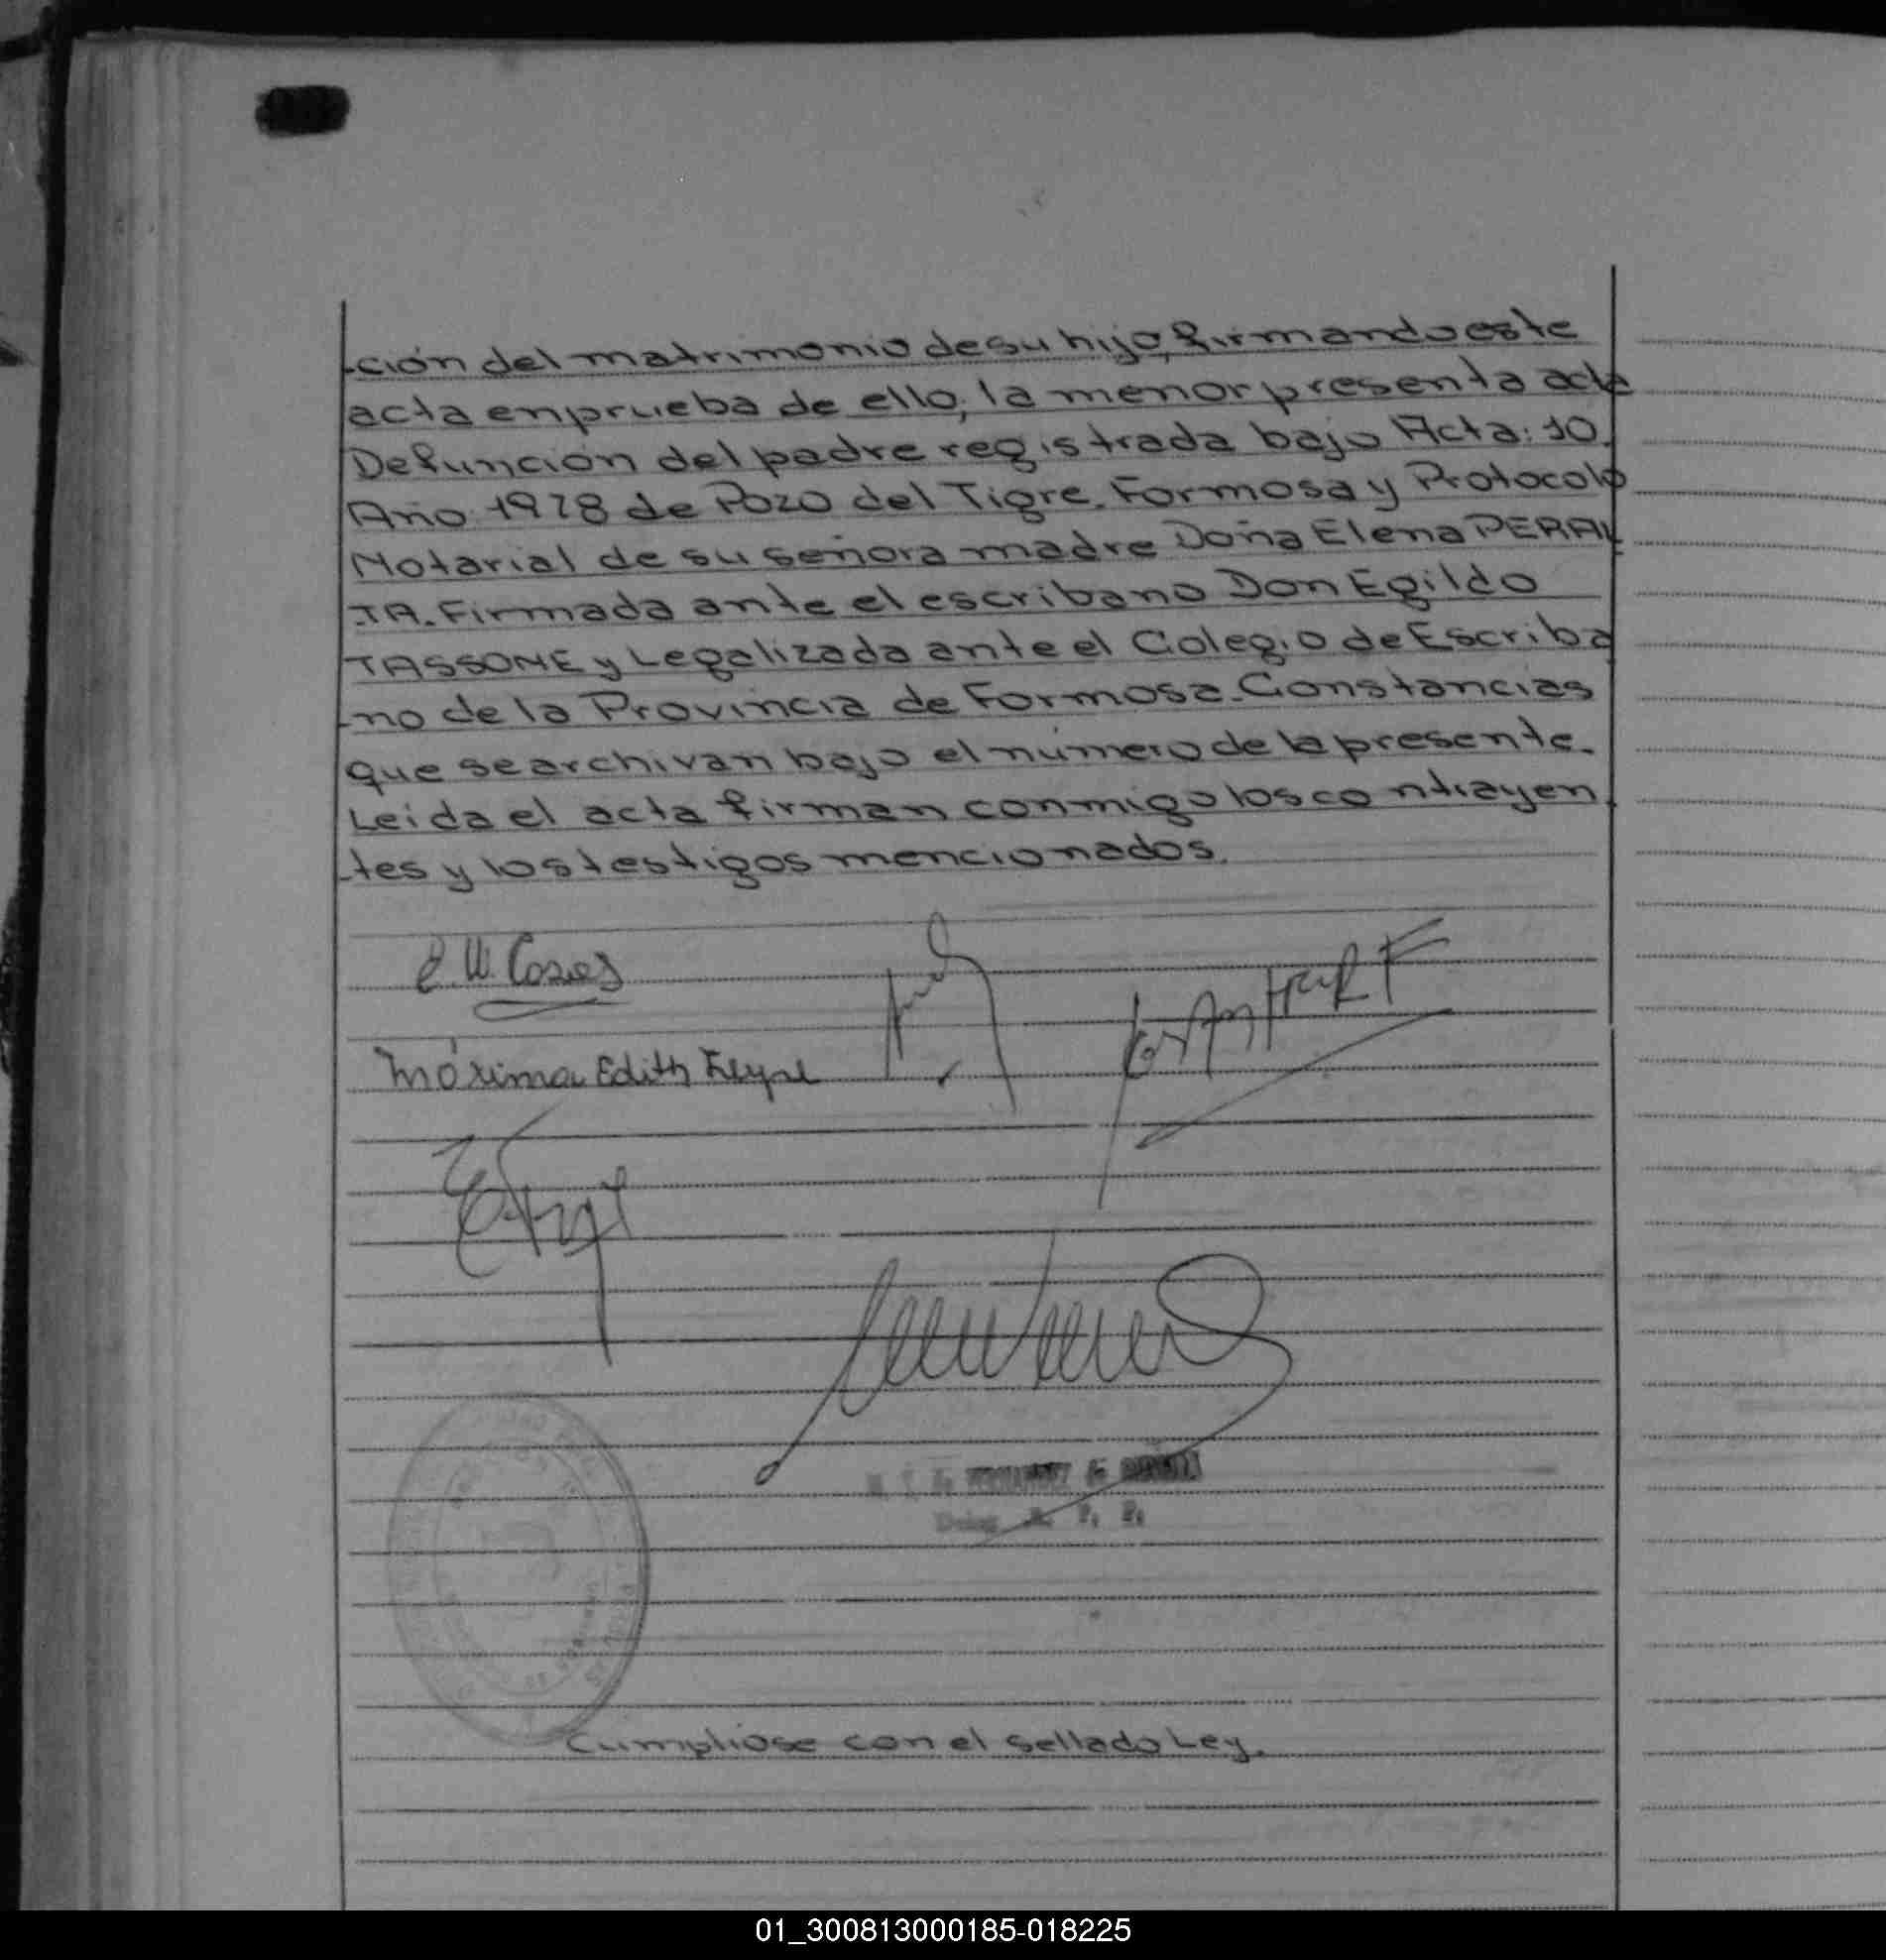 -ción del matrimonio de su hijo, firmando este
acta en prueba de ello, la menor presenta acta
Defunción del padre registrada bajo Acta: 10.
Año 1978 de Pozo del Tigre. Formosa y Protocolo
Notarial de su señora madre Doña Elena PERAL
-TA. Firmada ante el escribano Don Egildo
TASSONE y Legalizada ante el Colegio de Escriba
-no de la Provincia de Formosa. Constancias
que se archivan bajo el número de la presente.
Leída el acta firman conmigo los contrayen
-tes y los testigos mencionados.
Máxima Edith
Cumpliose con el sellado Ley.
01_300813000185-018225